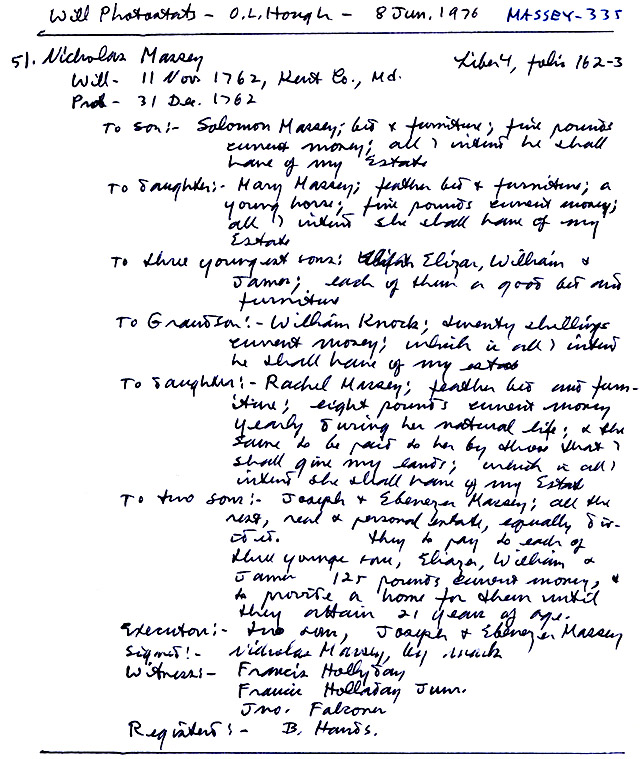 Will Photostats - O.L. Hough - 8 Jun. 1976 MASSEY-335
51. Nicholas Massey Liber 4, folio 162-3
Will - 11 Nov 1762, Kent Co., Md.
Prob - 31 Dec. 1762
To son:- Solomon Massey; bed & furniture; five pounds
current money; all I intend he shall
have of my Estate
To daughter:- Mary Massey; feather bed & furniture; a
young horse; five pounds current money;
all I intend she shall have of my
Estate
To three youngest sons: Elizar, William &
James; each of them a good bed and
furniture
To Grandson:- William Knock; twenty shillings
current money; which is all I intend
he shall have of my estate
To daughter:- Rachel Massey; feather bed and furn-
iture; eight pounds current money
yearly during her natural life; & the
same to be paid to her by those that I
shall give my lands; which is all I
intend she shall have of my Estate
To two sons:- Joseph & Ebenezer Massey; all the
rest, real & personal estate, equally div-
ided. They to pay to each of
three younge sons, Eliazer, William &
James 125 pounds current money, &
to provide a home for them until
they attain 21 years of age.
Executors:- two sons, Joseph & Ebenezer Massey
Signed:- Nicholas Massey, by mark
Witness:- Francis Hollyday
Francis Holladay Junr.
Jno. Falconer
Registered:- B. Hands.